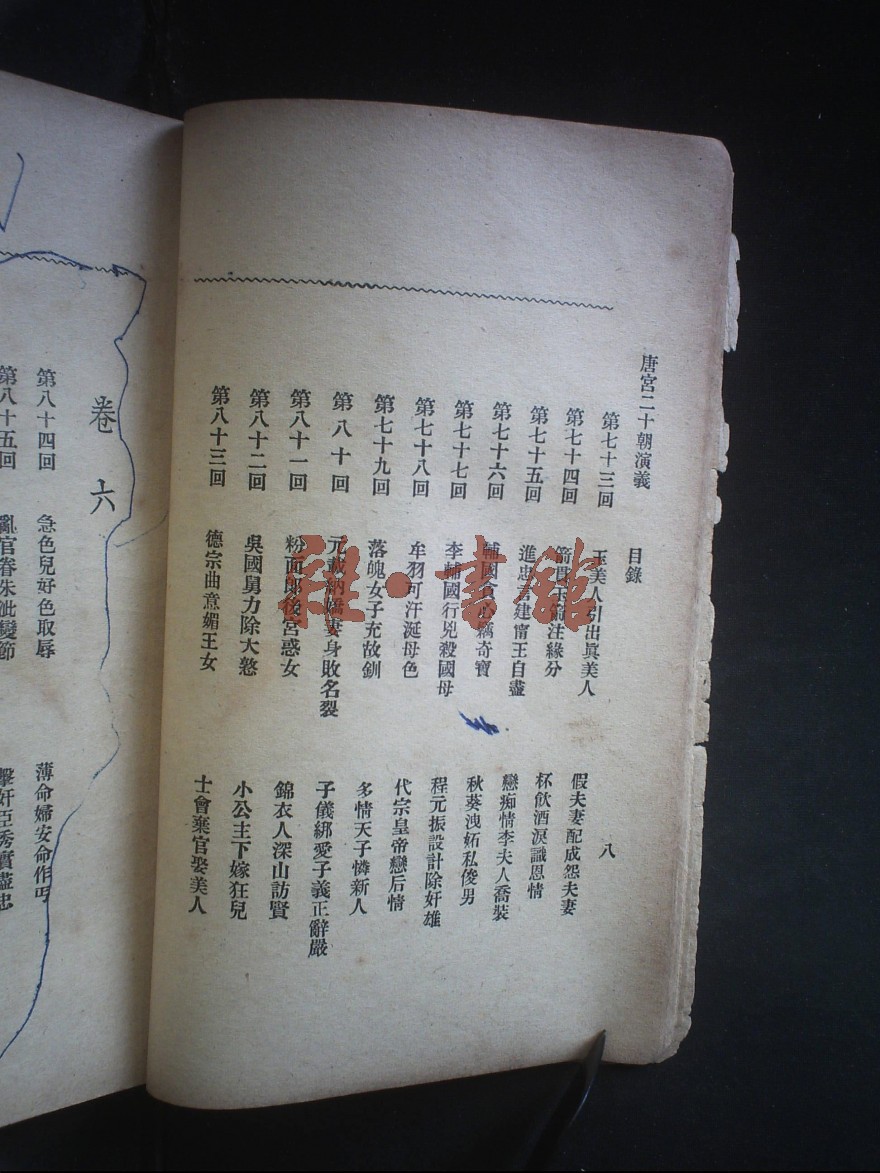 唐宮二十朝演義 目錄 八
第七十三回 玉美人引出眞美人 假夫妻配成怨夫妻
第七十四回 箭貫玉箭注緣分 杯飲酒淚識恩情
第七十五回 進忠言建甯王自盡 戀痴情李夫人喬裝
第七十六回 輔國 竊奇寶 秋葵洩妬私俊男
第七十七回 李輔國行兇殺國母 程元振設計除奸雄
第七十八回 牟羽可汗涎母色 代宗皇帝戀后情
第七十九回 落魄女子充故釧 多情天子憐新人
第八十回 元載納嬌妻身敗名裂 子儀綁愛子義正辭嚴
第八十一回 粉面郎後宮惑女 錦衣人深山訪賢
第八十二回 吳國舅力除大憝 小公主下嫁狂兒
第八十三回 德宗曲意媚王女 士會棄官娶美人
卷六
第八十四回 急色兒好色取辱 薄命婦安命作丐
第八十五回 亂官眷朱泚變節 擊奸臣秀實盡忠
雅·書館